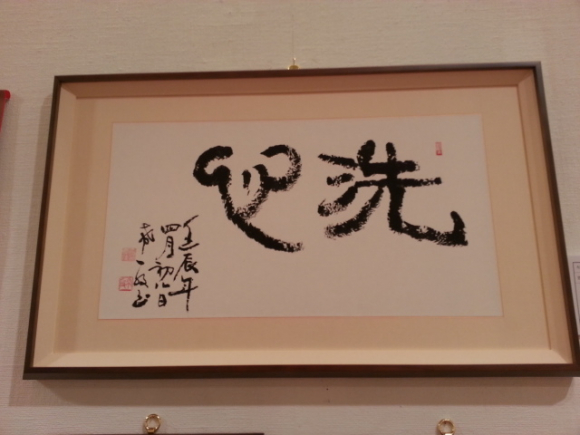 洗心
壬辰年
四月初八日